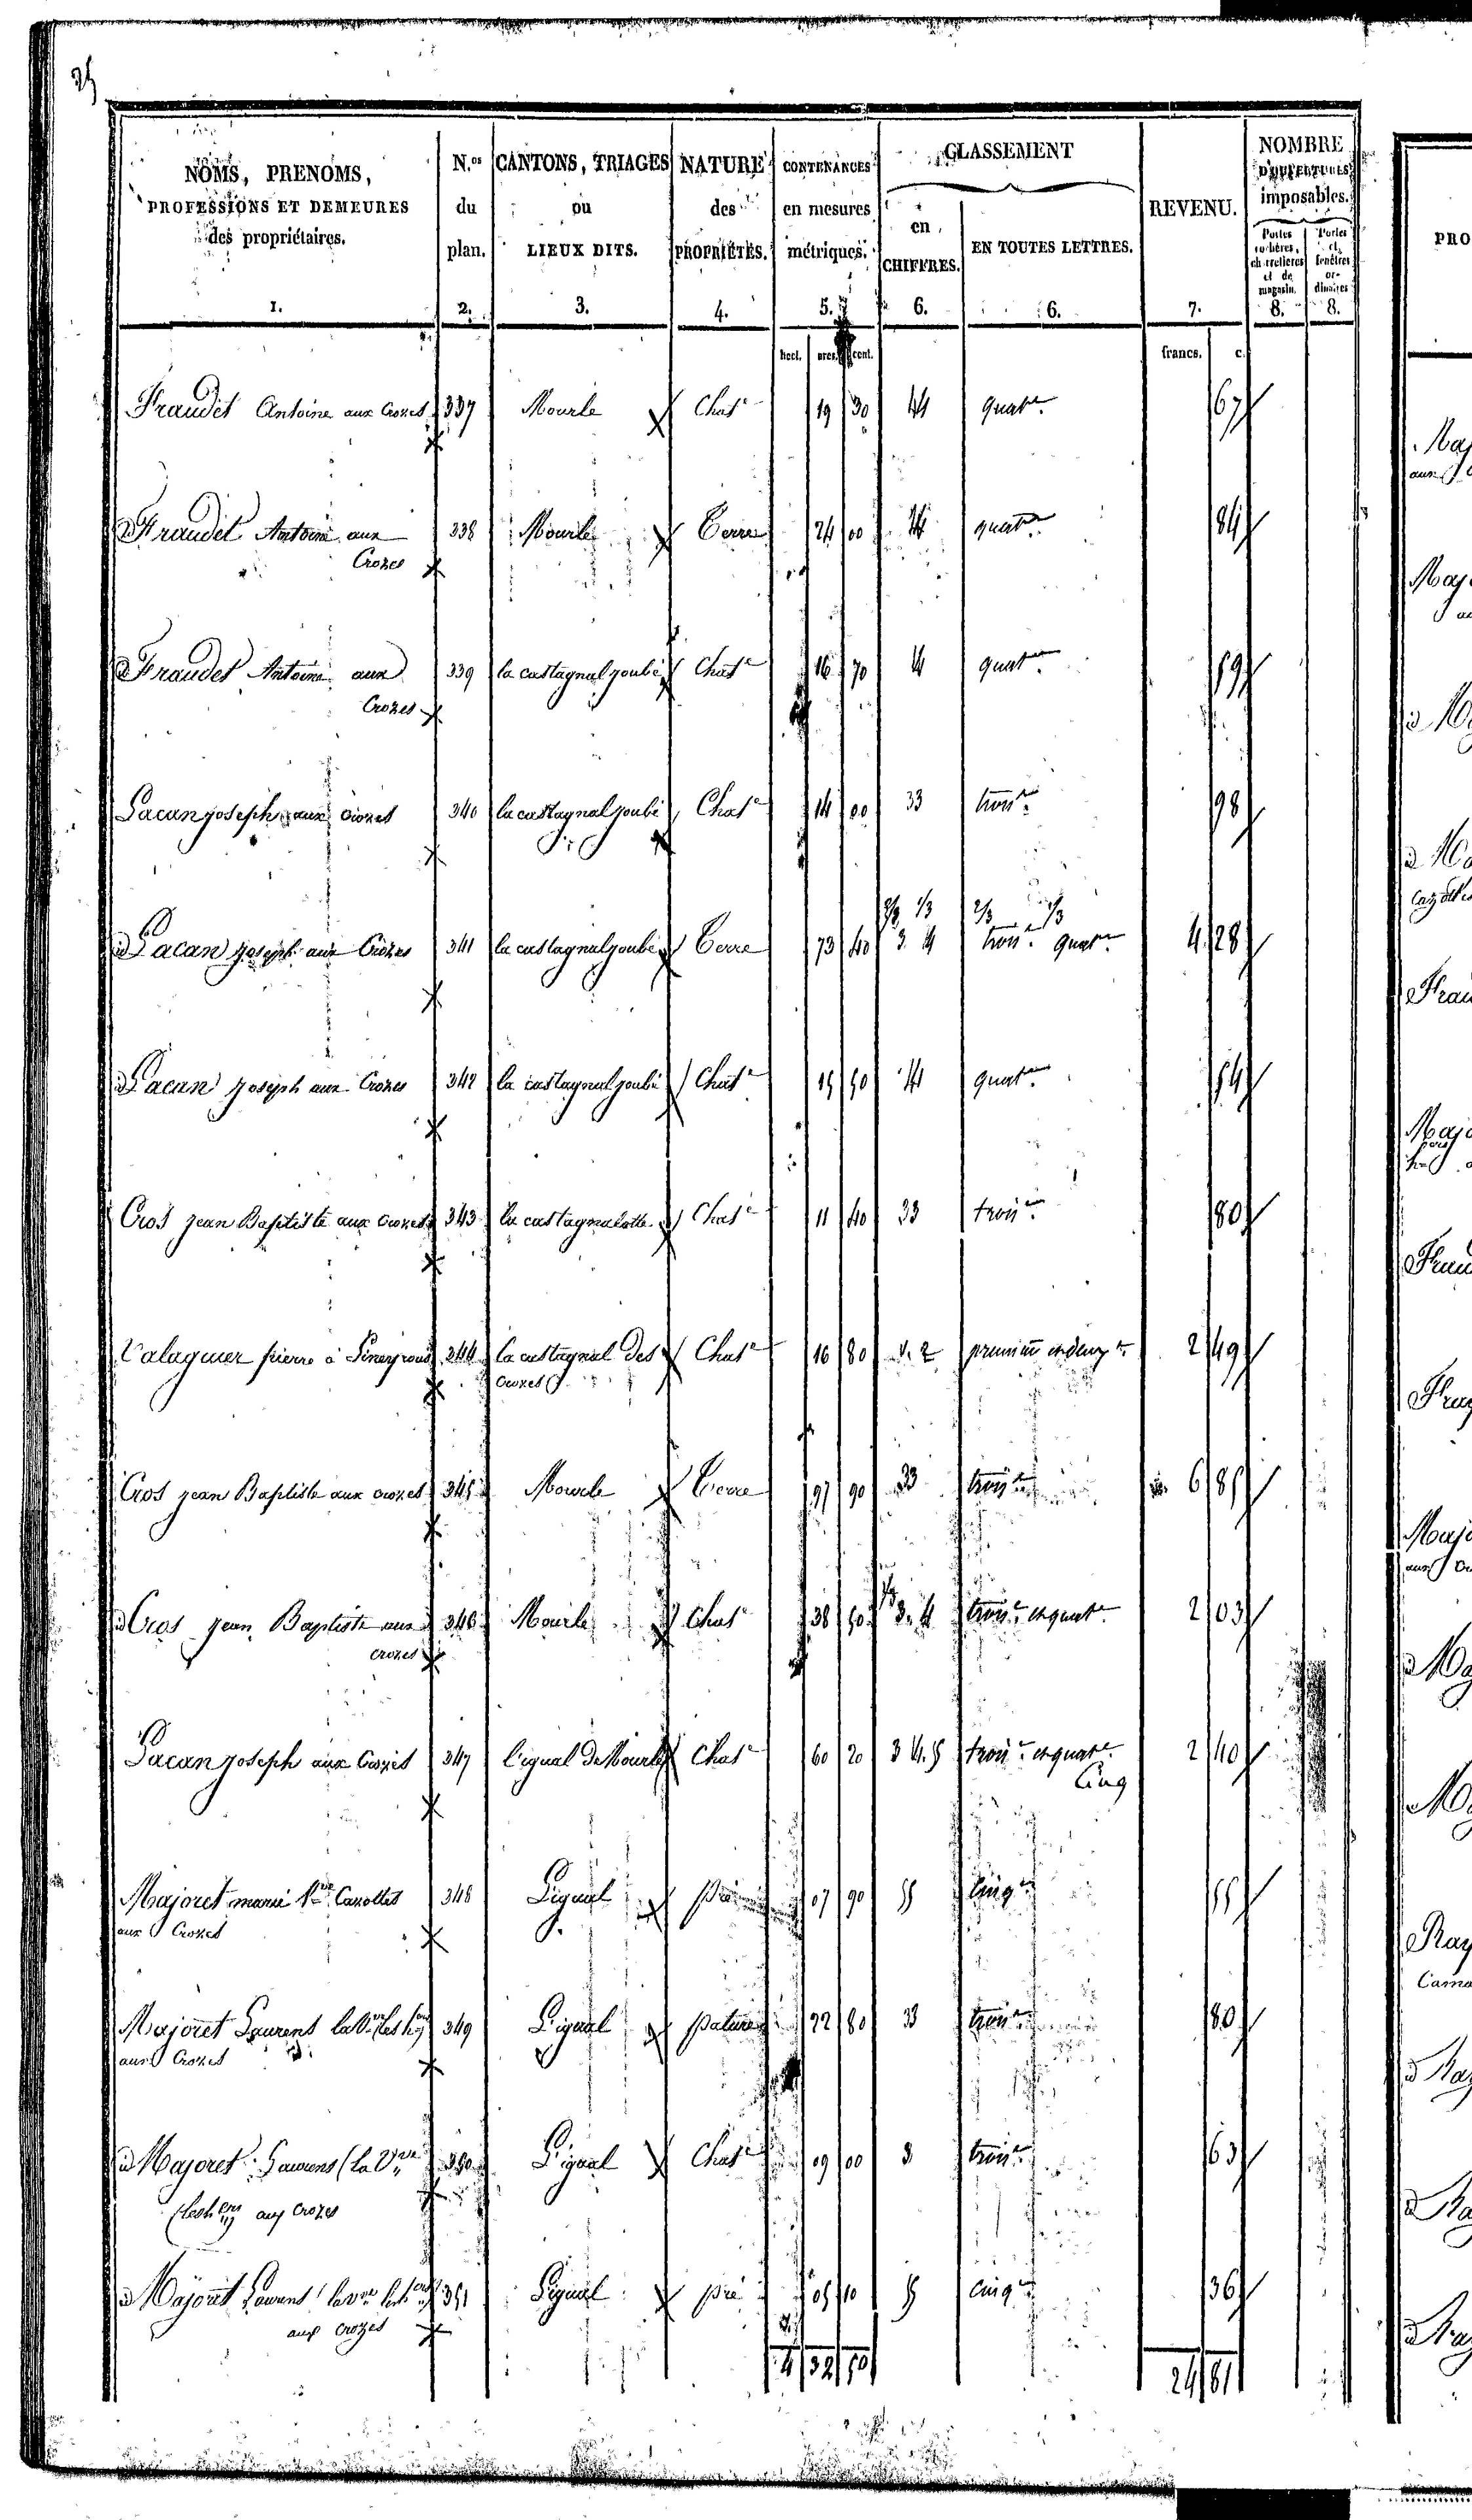 NOMS, PRENOMS,
PROFESSIONS ET DEMEURES
des propriétaires.
1.
N.os
du
plan.
2.
CANTONS, TRIAGES
ou
LIEUX DITS.
3.
NATURE
des
PROPRIÉTÉS.
4.
CONTENANCES
en mesures
métriques.
5.
CLASSEMENT
en
CHIFFRES.
6.
EN TOUTES LETTRES.
6.
REVENU.
7.
NOMBRE
D'OUVERTURES
imposables.
Portes
cochères,
charretières
et de
magasin.
8.
Portes
et
fenêtres
or-
dinaires
8.
hect. ares cent. francs. c.
Fraudet Antoine aux Crozes 337 Mourle Chat.e 19 30 4 quat.e 67
Fraudet Antoine aux 338 Mourle Terre 24 00 4 quat.e 84
Crozes
Fraudet Antoine aux 339 la castagnal joubé Chat.e 16 70 4 quat.e 59
Crozes
Pacan joseph aux Crozes 340 la castagnal joubé Chat.e 14 00 3 trois.e 98
2/3 1/3 2/3 1/3
Pacan joseph aux Crozes 341 la castagnal joubé Terre 73 40 3. 4 trois.e quat.e 4 28
Pacan joseph aux Crozes 342 la castagnal joubé Chat.e 15 50 4 quat.e 54
Cros jean Baptiste aux Crozes 343 la castagnalotte Chat.e 11 40 3 trois.e 80
Valaguier pierre à 344 la castagnal des Chat.e 16 80 1. 2 premiere et deux.e 2 49
Crozes
Cros jean Baptiste aux crozes 345 Mourle Terre 97 90 3 trois.e 6 85
Cros jean Baptiste aux 346 Mourle Chat.e 38 50 3. 4 trois.e et quat.e 2 03
crozes
Pacan joseph aux Crozes 347 l'igual de Mourle Chat.e 60 20 3 4. 5 trois.e et quat.e 2 40
Cinq
Majoret marie V.ve Cazottes 348 Ligual pré 07 90 5 Cinq.e 55
aux Crozes
Majoret Laurent la V.ve les h.ers 349 Ligual pature 22 80 3 trois.e 80
aux Crozes
Majoret Laurens (la V.ve 350 Ligual Chat.e 09 00 3 trois.e 63
(les h.ers aux Crozes
Majoret Laurent la v.ve les h.ers 351 Ligual pré 05 10 5 cinq.e 36
aux Crozes
4 32 50 24 81